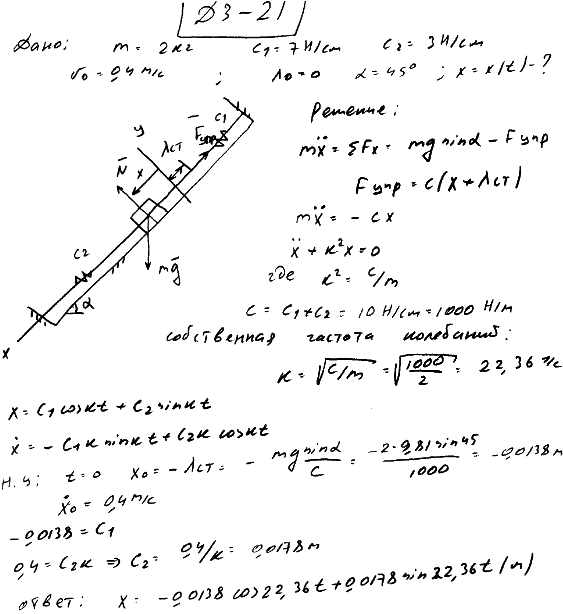 Д3-21
Дано: m = 2кг c1 = 7 Н/см c2 = 3 Н/см
v0 = 0,4 м/с ; λ0 = 0 α = 45° ; x = x(t) - ?
Решение:
mẍ = ΣFx = mg sinα - Fупр
Fупр = c(x + λст)
mẍ = - cx
ẍ + к²x = 0
где к² = c/m
c = c1 + c2 = 10 Н/см = 1000 Н/м
собственная частота колебаний:
к = √c/m = √1000/2 = 22,36 1/с
c1
y
Fупр
λст
x
N
c2
mg
α
x
x = C1 cosкt + C2 sinкt
ẋ = - C1к sinкt + C2к cosкt
н.у: t = 0 x0 = - λст = - mg sinα/c = -2·9,81 sin45/1000 = -0,0138м
ẋ0 = 0,4 м/с
-0,0138 = C1
0,4 = C2к ⇒ C2 = 0,4/к = 0,0178м
ответ: x = -0,0138 cos22,36t + 0,0178 sin22,36t (м)